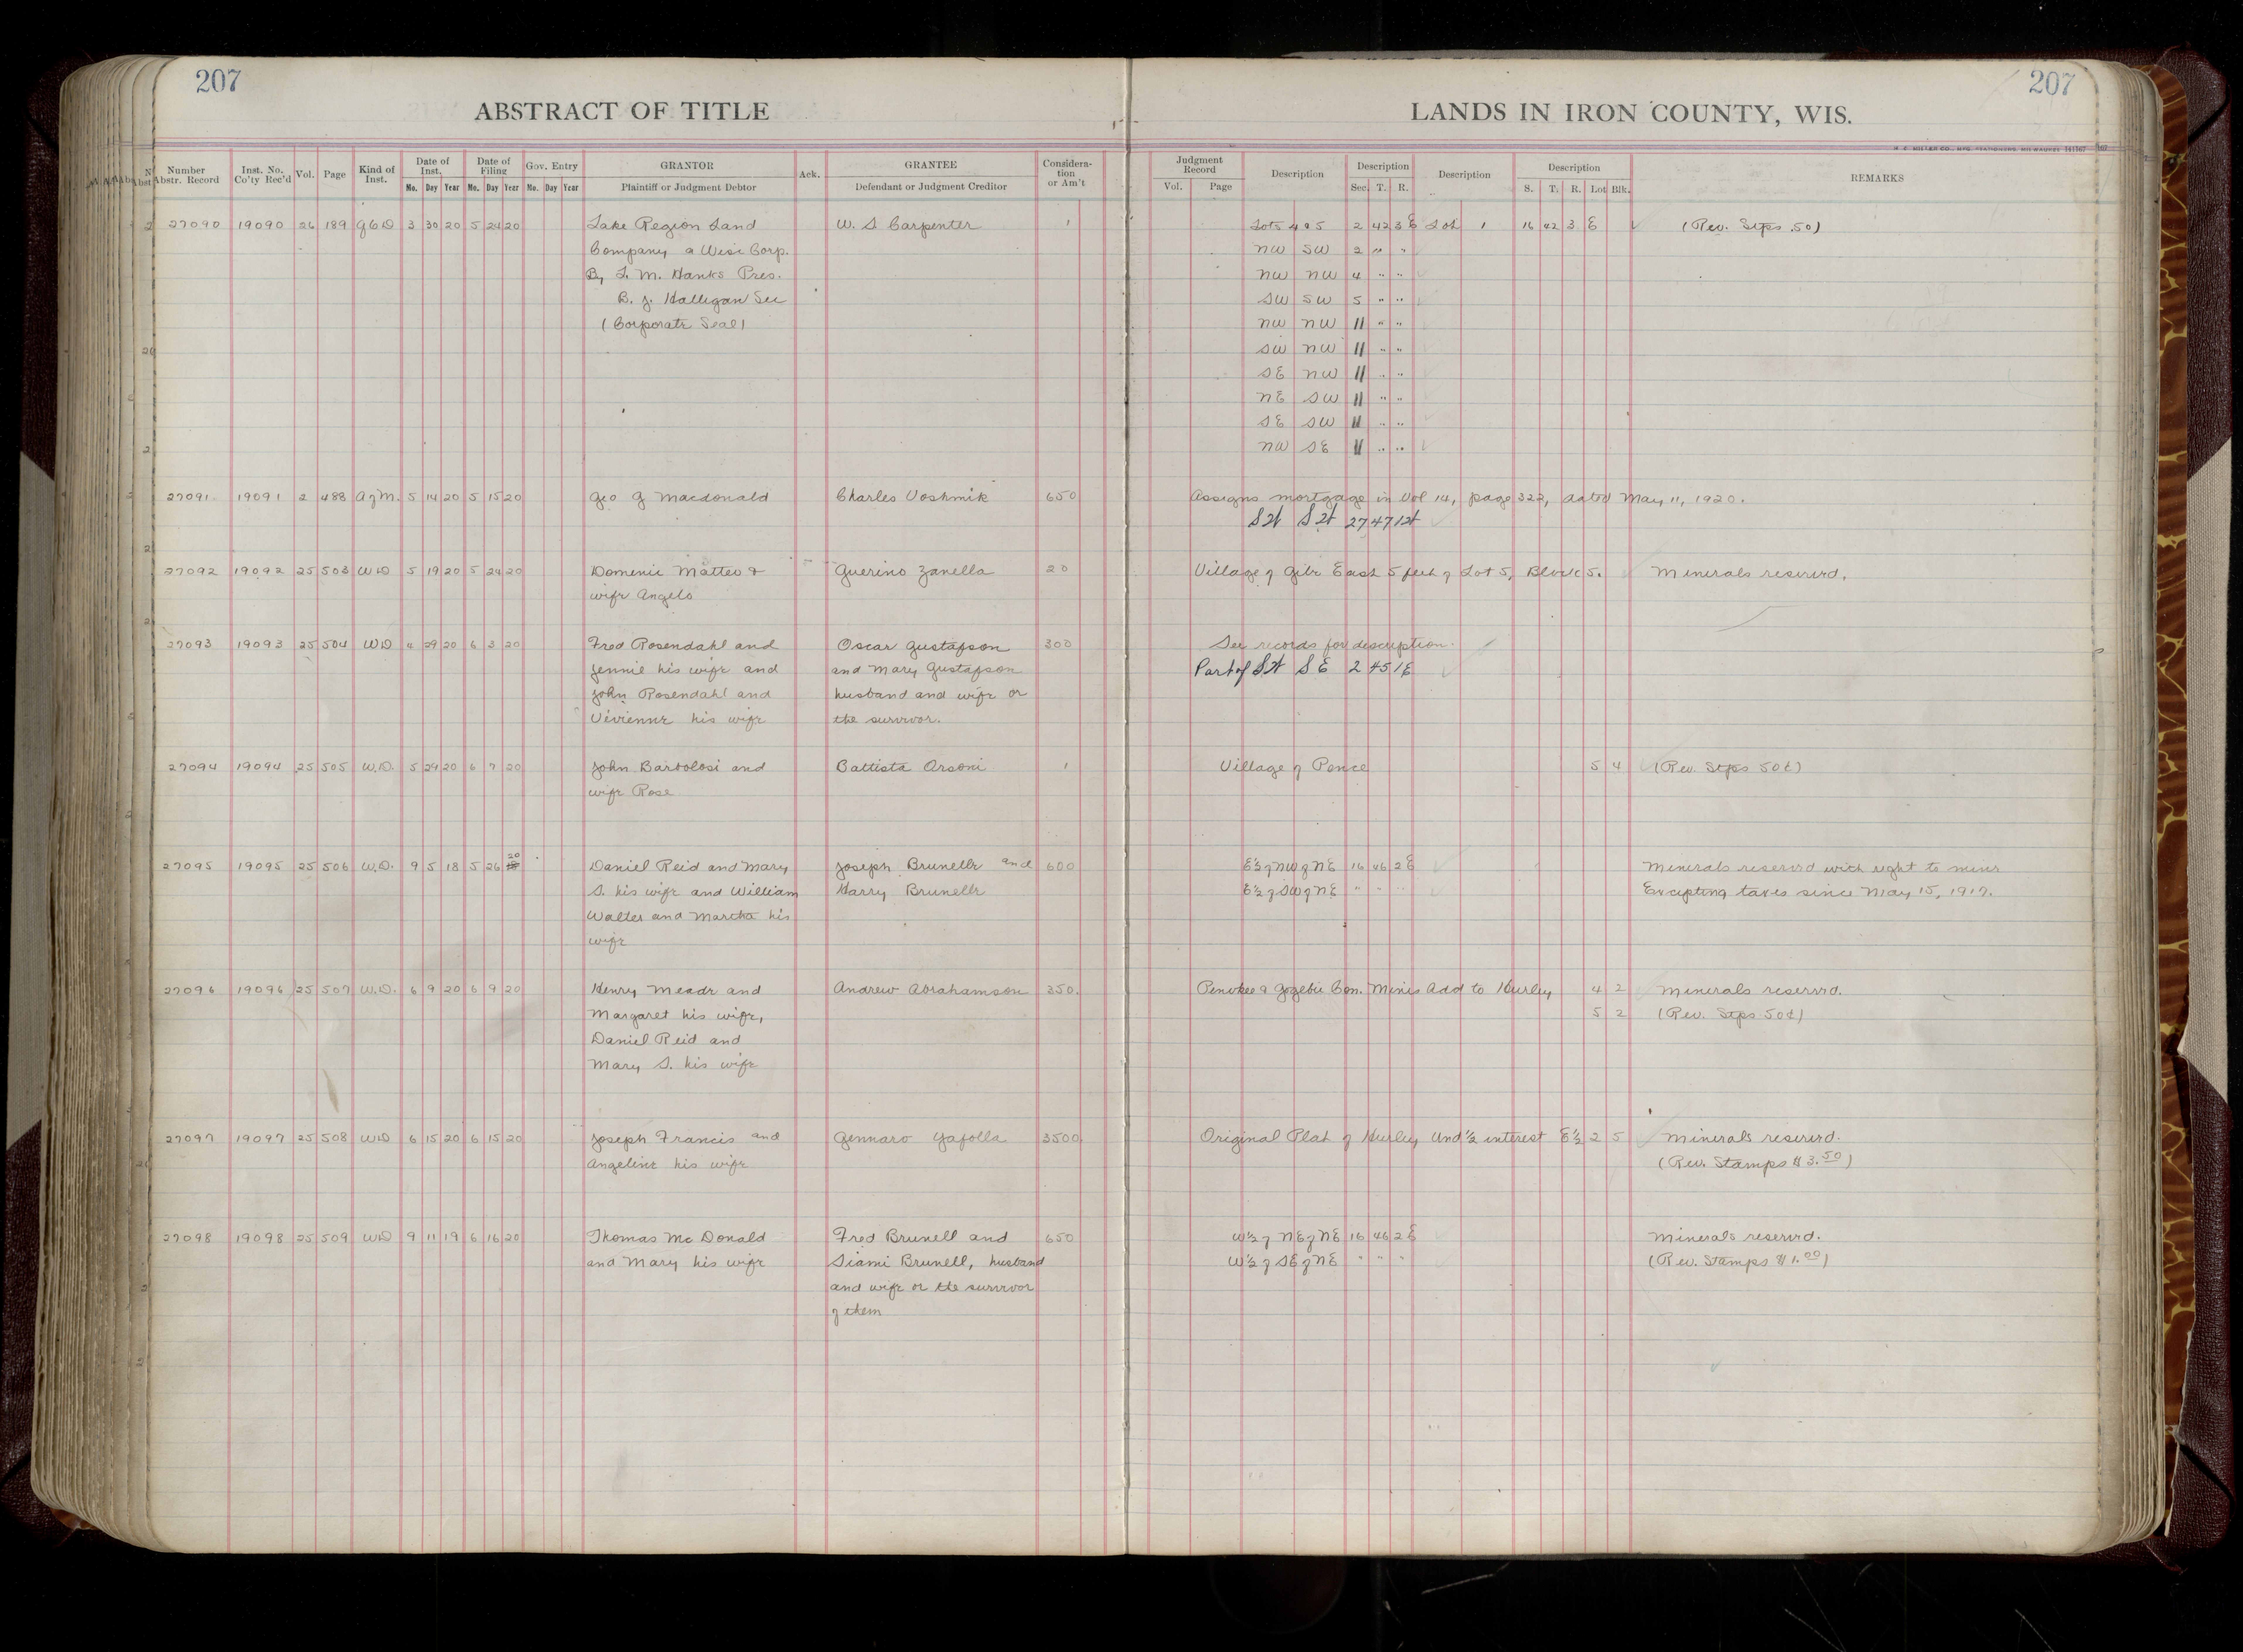 207
207
ABSTRACT OF TITLE
LANDS IN IRON COUNTY, WIS.
Number Abstr. Record Inst. No. Co'ty Rec'd Vol. Page Kind of Inst. Date of Inst. Mo. Day Year Date of Filing Mo. Day Year Gov. Entry Mo. Day Year GRANTOR Plaintiff or Judgment Debtor Ack. GRANTEE Defendant or Judgment Creditor Considera-tion or Am't
Judgment Record Vol. Page Description Description Sec. T. R. Description Description S. T. R. Lot Blk. REMARKS
27090 19090 26 189 3 30 20 5 24 20 Lake Region Land W. S Carpenter 1 Lots 4 & 5 2 42 3 E Lot 1 16 42 3 E (Rev. Stps .50)
Company a Wesc Corp. NW SW 2 " "
By L. M. Hanks Pres. NW NW 4 " "
B. J. Halligan Sec SW SW 5 " "
(Corporate Seal) NW NW 11 " "
SW NW 11 " "
SE NW 11 " "
NE SW 11 " "
SE SW 11 " "
NW SE 11 " "
27091 19091 2 488 A of M. 5 14 20 5 15 20 Geo G Macdonald Charles Voshmik 650 Assigns mortgage in Vol 14, page 322, dated May 11, 1920.
27 47
27092 19092 25 503 WD 5 19 20 5 24 20 Domenic Matteo & Guerino Zanella 20 Village of Gile East 5 feet of Lot 5, Block 5. Minerals reserved.
wife Angelo
27093 19093 25 504 WD 4 29 20 6 3 20 Fred Rosendahl and Oscar Gustafson 300 See records for description.
Jennie his wife and and Mary Gustafson Part of SE 2 45 1E
John Rosendahl and husband and wife or
Vivienne his wife the survivor.
27094 19094 25 505 W.D. 5 29 20 6 7 20 John Bartolosi and Battista Orsoni 1 Village of Pence 5 4 (Rev. Stps 50¢)
wife Rose
27095 19095 25 506 W.D. 9 5 18 5 26 20 Daniel Reid and Mary Joseph Brunelle and 600 E½ of NW of NE 16 46 2 E Minerals reserved with right to mine
S. his wife and William Harry Brunelle E½ of SW of NE " " " Excepting taxes since May 15, 1917.
Walter and Martha his
wife
27096 19096 25 507 W.D. 6 9 20 6 9 20 Henry Meade and Andrew Abrahamson 350. Penokee & Gogebic Con. Mines Add to Hurley 4 2 Minerals reserved.
Margaret his wife, 5 2 (Rev. Stps 50¢)
Daniel Reid and
Mary S. his wife
27097 19097 25 508 WD 6 15 20 6 15 20 Joseph Francis and Gennaro Yafolla 3500. Original Plat of Hurley Und ½ interest E½ 2 5 Minerals reserved.
Angeline his wife (Rev. Stamps $3.50)
27098 19098 25 509 WD 9 11 19 6 16 20 Thomas McDonald Fred Brunell and 650 W½ of NE of NE 16 46 2 E Minerals reserved.
and Mary his wife Siami Brunell, husband W½ of SE of NE " " " (Rev. Stamps $1.00)
and wife or the survivor
of them